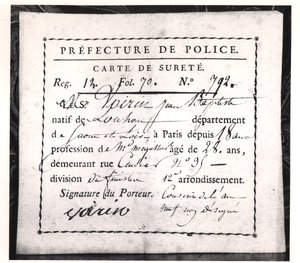 PRÉFECTURE DE POLICE.
CARTE DE SURETÉ.
Reg. 12. Fol. 70. N.o 792.
Voirin jean Baptiste
natif de Louhans département
de Saone et Loire à Paris depuis 18 ans
profession de Md âgé de 28. ans,
demeurant rue N° 95
division du finistere 12e arrondissement.
Signature du Porteur.
voirin